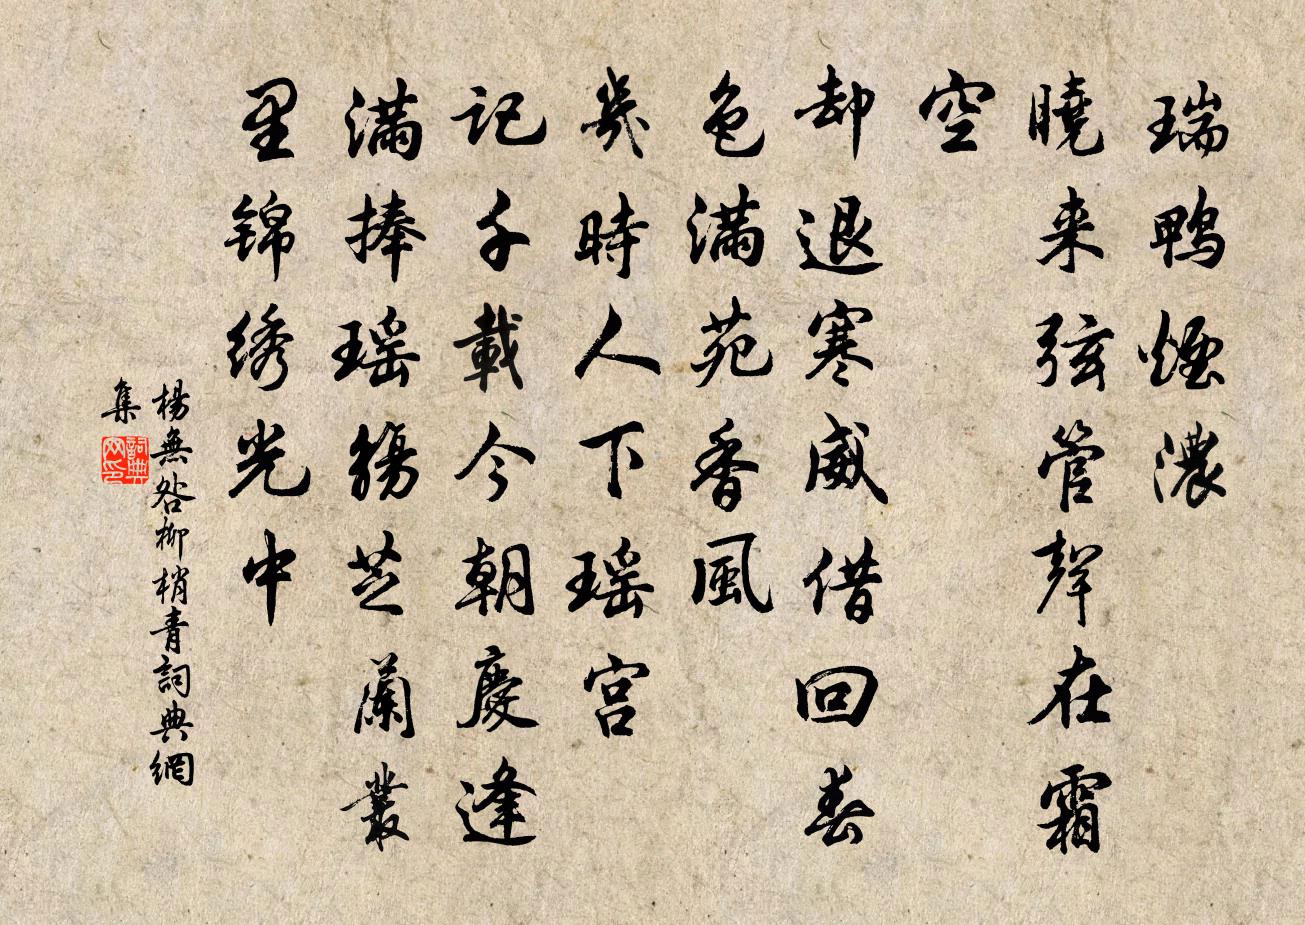 瑞鴨煙濃
曉来弦管聲在霜
空
却退寒威借回春
色滿苑香風
幾時人下瑶宫
記千載今朝慶逢
满捧瑶觞芝蘭叢
里锦绣光中
楊無咎柳梢青詞典網
集
詞典
网印